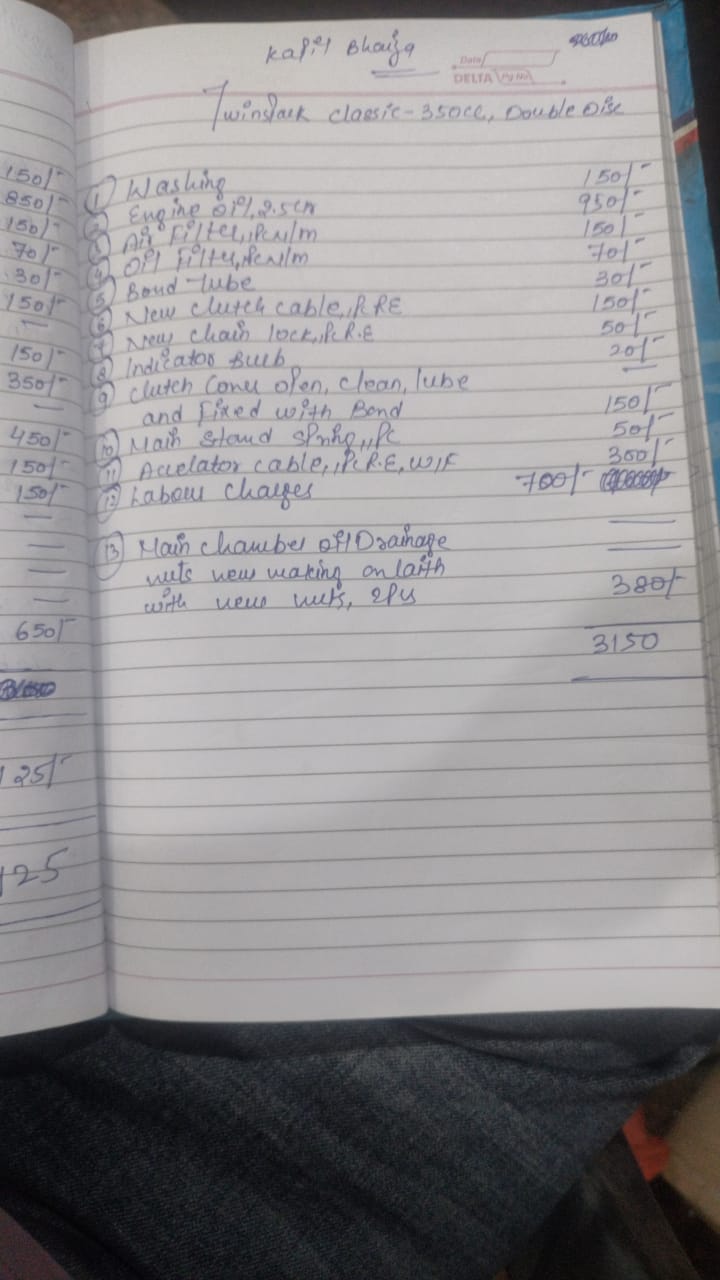 Kapil Bhaiya
Date
DELTA Pg No
Twinspark Classic-350cc, Double Disc
150/-
850/-
150/-
70/-
30/-
150/-
150/-
350/-
450/-
150/-
150/-
650/-
125/-
125
① Washing 150/-
② Engine Oil, 2.5 950/-
③ Air Filter, 150/-
④ Oil Filter, 70/-
⑤ Bond tube 30/-
⑥ New clutch cable, 150/-
⑦ New chain lock, 50/-
⑧ Indicator Bulb 20/-
⑨ Clutch open, clean, lube
and Fixed with Bond 150/-
⑩ Main Stand 50/-
⑪ cable, 300/-
⑫ Labour Charges 700/-
⑬ Main chamber oil Drainage
nuts new making on laith
with new nuts, 380/-
3150